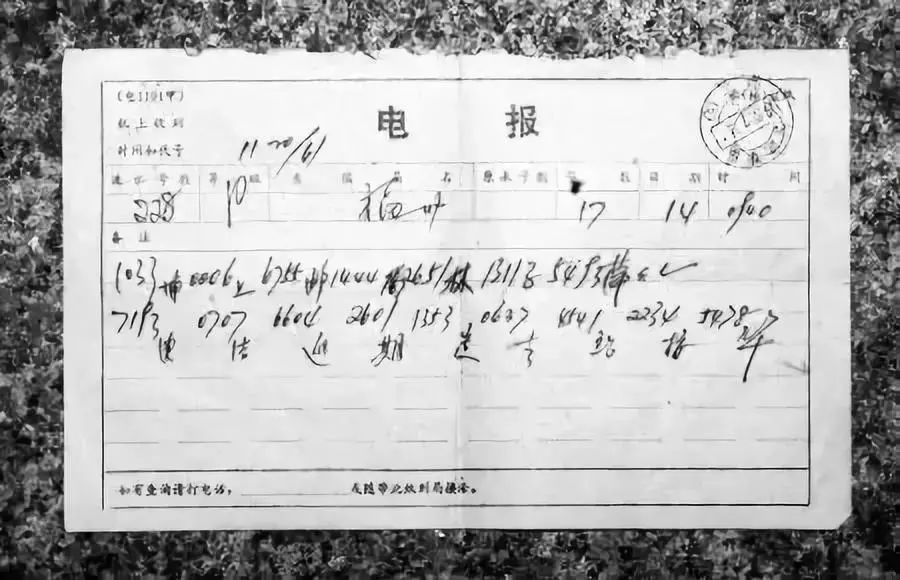 (电111甲)
电 报
机上收到
时间和代号
11 20/61
流水号数 等级 发报局名 原来号数 字数 日期 时间
228 福州 17 14 0940
备注
1033埔 0006上 6755邮 1444 2651林 1311子 5493
7193 0707 6604 2609 1353 0637 4541 2234 5478
电 告 返 期 送 吉 站 接 华
如有查询请打电话, 或随带此纸到局接洽。